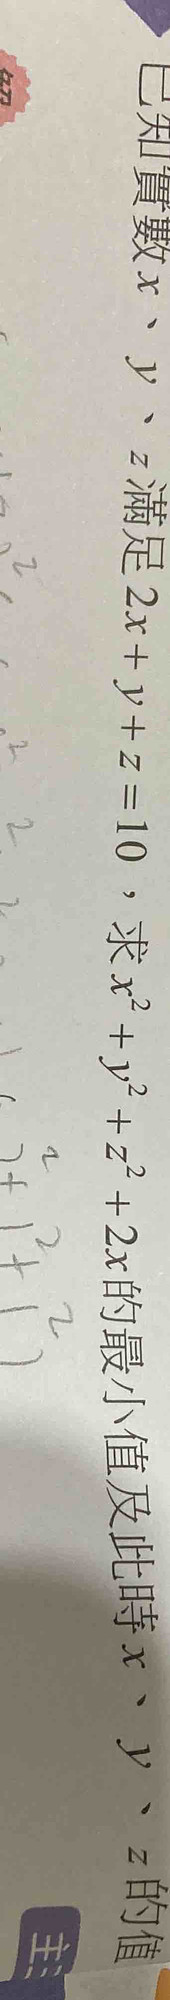 已知實數x、y、z滿足2x+y+z=10，求x²+y²+z²+2x的最小值及此時x、y、z的值
2+1²+1²)
主